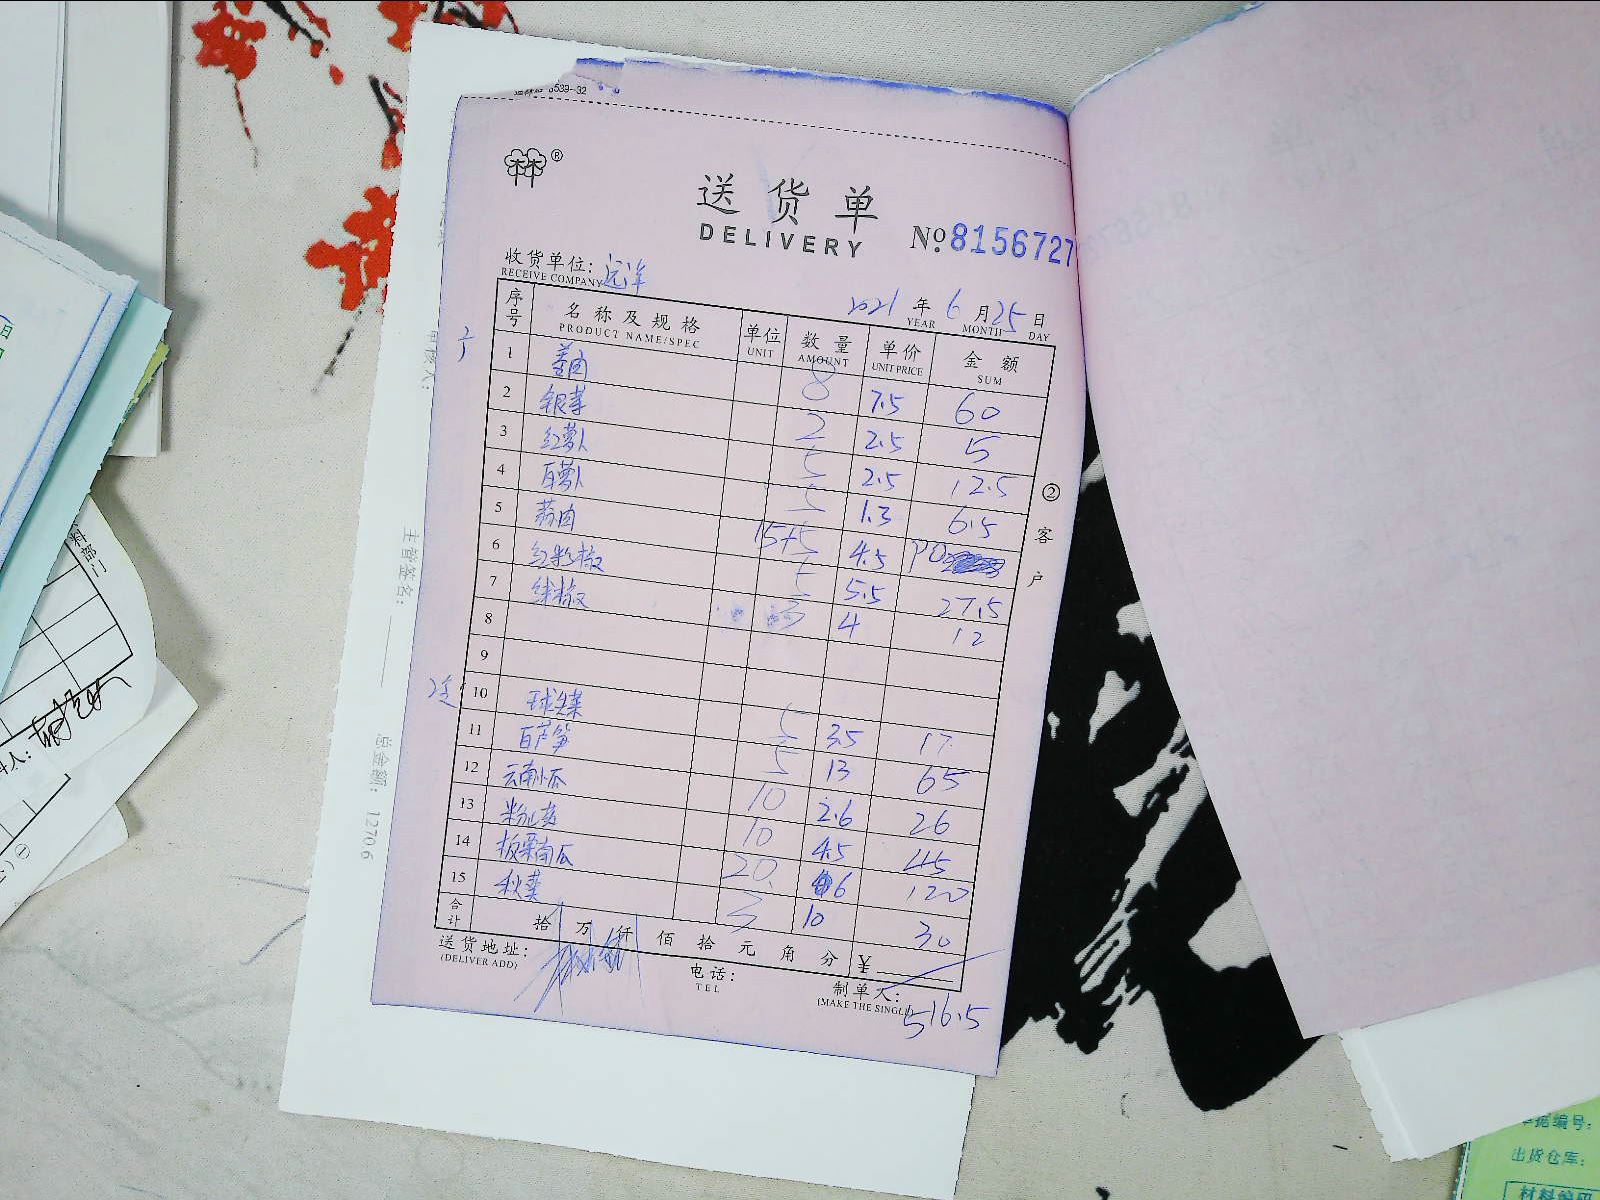 8539-32
林®
送货单
DELIVERY
No 8156727
收货单位: 远洋
RECEIVE COMPANY
2021 年 6 月 25 日
YEAR MONTH DAY
序号 名称及规格 单位 数量 单价 金额
PRODUCT NAME/SPEC UNIT AMOUNT UNIT PRICE SUM
1 姜肉 8 7.5 60
2 银芽 2 2.5 5
3 红萝卜 5 2.5 12.5
4 白萝卜 5 1.3 6.5
5 蒜肉 15+5 4.5 90
6 红彩椒 5 5.5 27.5
7 线椒 3 4 12
8
9
10 球生菜 5 3.5 17
11 白芦笋 5 13 65
12 云南小瓜 10 2.6 26
13 10 4.5 45
14 板栗南瓜 20 6 120
15 秋葵 3 10 30
合计 拾 万 仟 佰 拾 元 角 分 ¥
送货地址:
(DELIVER ADD)
电话:
TEL
制单人:
(MAKE THE SINGLE)
516.5
② 客户
主管签名:
总金额: 1270.6
料部门
人:
单据编号:
出货仓库:
材料编码